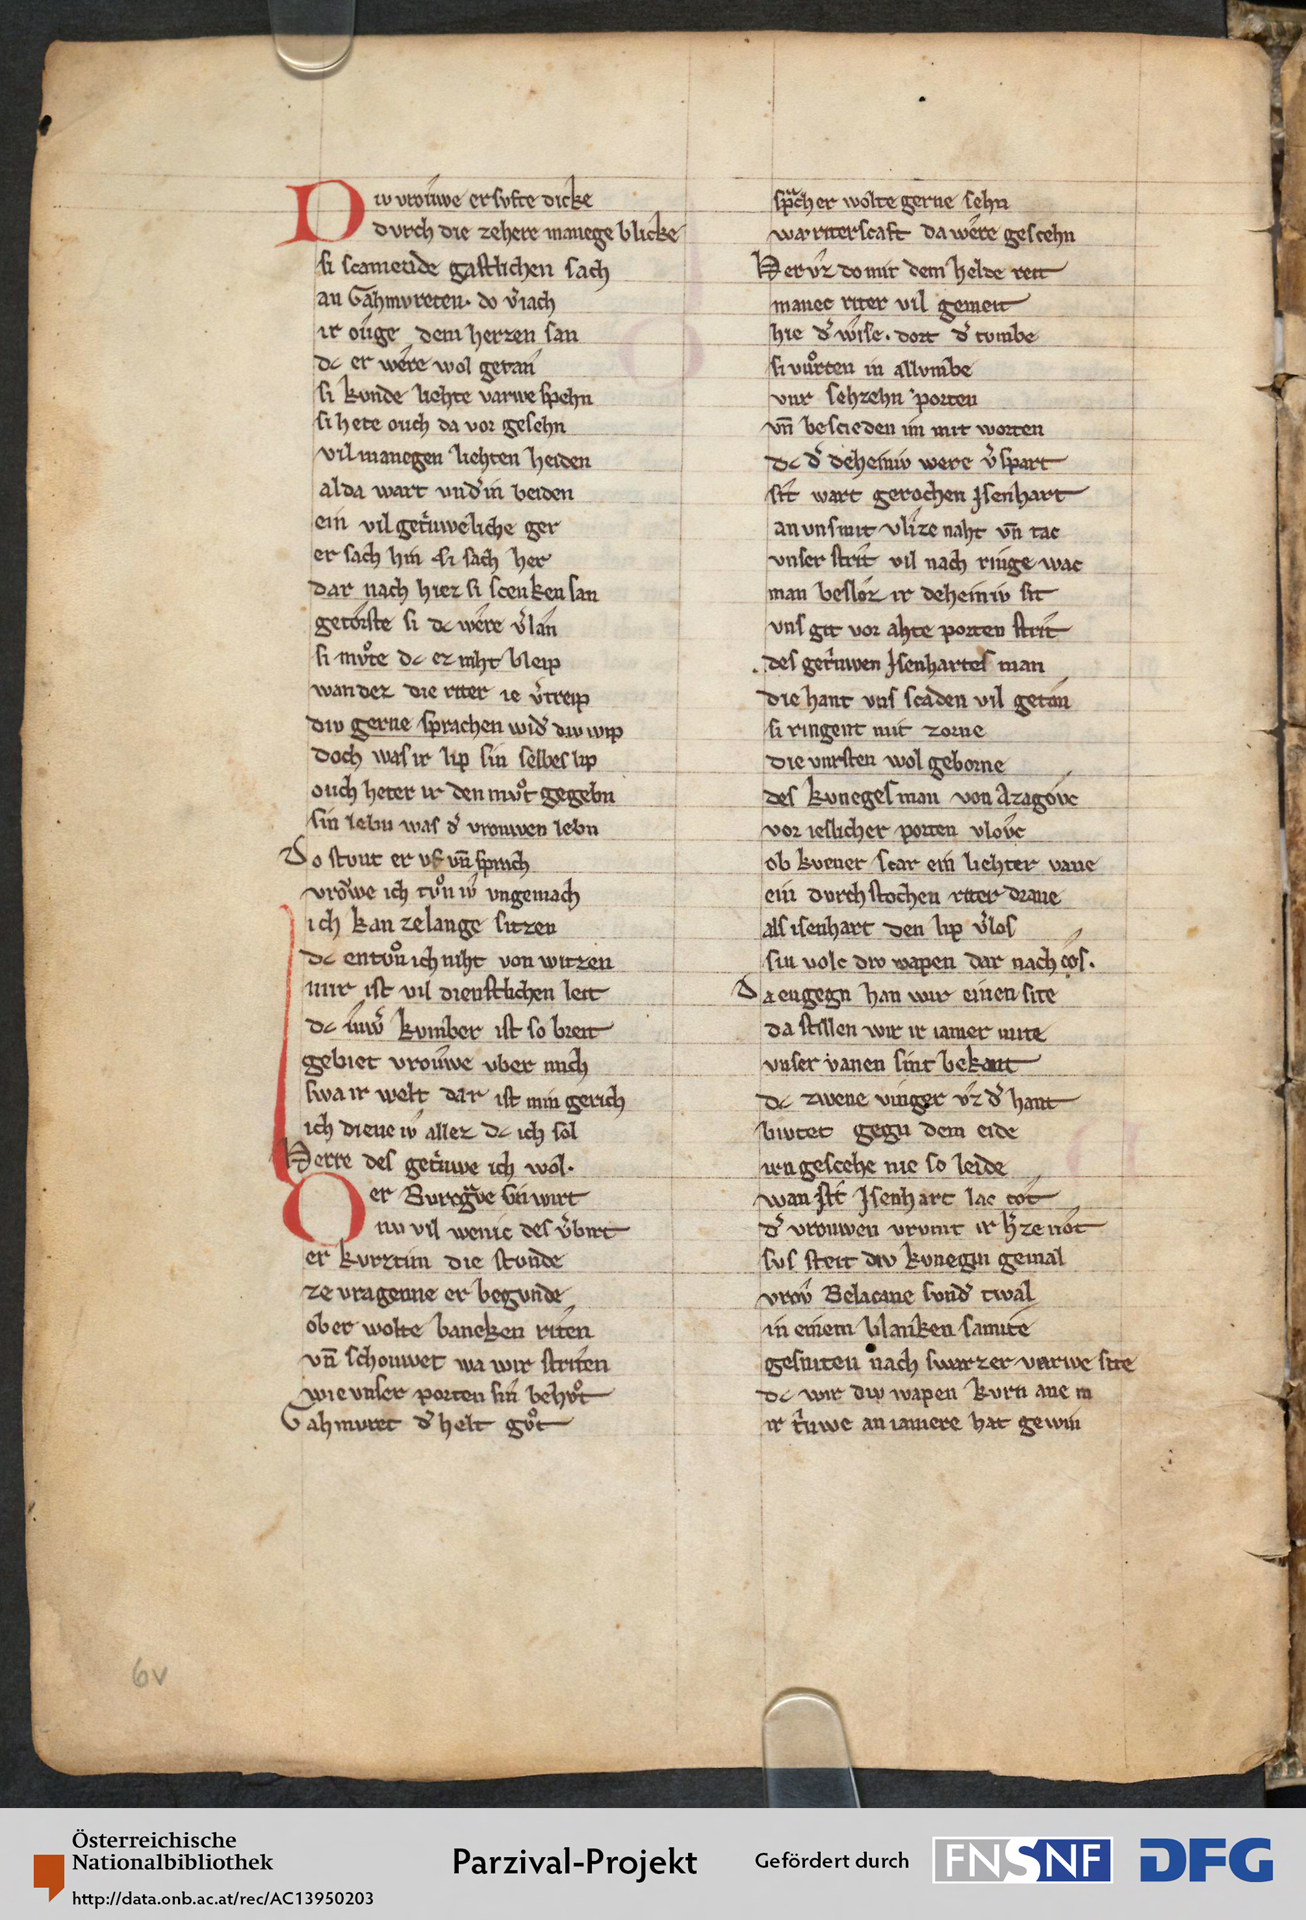 Diu vroͮwe ersvfte dicke
dvrch die zehere manege blicke
si scamende gastlichen sach
an Gahmvreten· do v͛iach
ir oͮge dem herzen san
dc er were wol getan
si kvnde liehte varwe spehn
si hete ouch da vor gesehn
vil manegen liehten heiden
alda wart vnd͛ in beiden
ein vil getruweliche ger
er sach hin si sach her
dar nach hiez si scenken san
getorste si dc were v͛lan
si mvͦte dc ez niht bleip
wan dez die riter ie v͛treip
div gerne sprachen wid͛ div wip
doch was ir lip sin selbes lip
ouch heter ir den mvͦt gegebn
sin lebn was d͛ vrouwen lebn
Do stvnt er vf vn̄ sprach
vroͮwe ich tvͦn iv ungemach
ich kan ze lange sitzen
dc entvͦn ich niht von witzen
mir ist vil dienstlichen leit
dc iwͦ͛ kvmber ist so breit
gebiet vroͮwe vber mich
swa ir welt dar ist min gerich
ich diene iv allez dc ich sol
Herre des getruwe ich wol·
Der Burcgᵃve sin wirt
nu vil wenic des v͛birt
er kvrzt im die stvnde
ze vragenne er begvnde
ob er wolte baneken riten
vn̄ schouwet wa wir striten
wie vnser porten sin behvͦt
Gahmvret d͛ helt gvͦt
spᵃch er wolte gerne sehn
wa riterscaft da were gescehn
Her vz do mit dem helde reit
manec riter vil gemeit
hie d͛ wise· dort d͛ tumbe
si vuͦrten in allumbe
vur sehzehn porten
vn̄ bescieden im mit worten
dc d͛ deheiniv were v͛spart
sit wart gerochen Jsenhart
an vns mit vlize naht vn̄ tac
vnser strit vil nach ringe wac
man besloz ir deheiniv sit
vns git vor ahte porten strit
des getruwen Jsenhartes man
die hant vns scaden vil getan
si ringent mit zorne
die vursten wol geborne
des kvneges man von Azagouc
vor ieslicher porten vlouc
ob kvener scar ein liehter vane
ein dvrchstochen riter drane
als isenhart den lip v͛los
sin volc div wapen dar nach cos·
Da engegn han wir einen site
da stillen wir ir iamer mite
vnser vanen sint bekant
dc zwene vinger vz d͛ hant
bivtet gegn dem eide
irn gescehe nie so leide
wan sit Jsenhart lac tot
d͛ vrouwen vrumt ir h͛ze not
svs stett div kvnegin gemal
vroͮ Belacane svnd͛ twal
in einem blanken samite
gesniten nach swarzer varwe site
dc wir div wapen kvrn ane in
ir truwe an iamere hat gewin
6v
Österreichische
Nationalbibliothek
http://data.onb.ac.at/rec/AC13950203
Parzival-Projekt
Gefördert durch
FNSNF
DFG